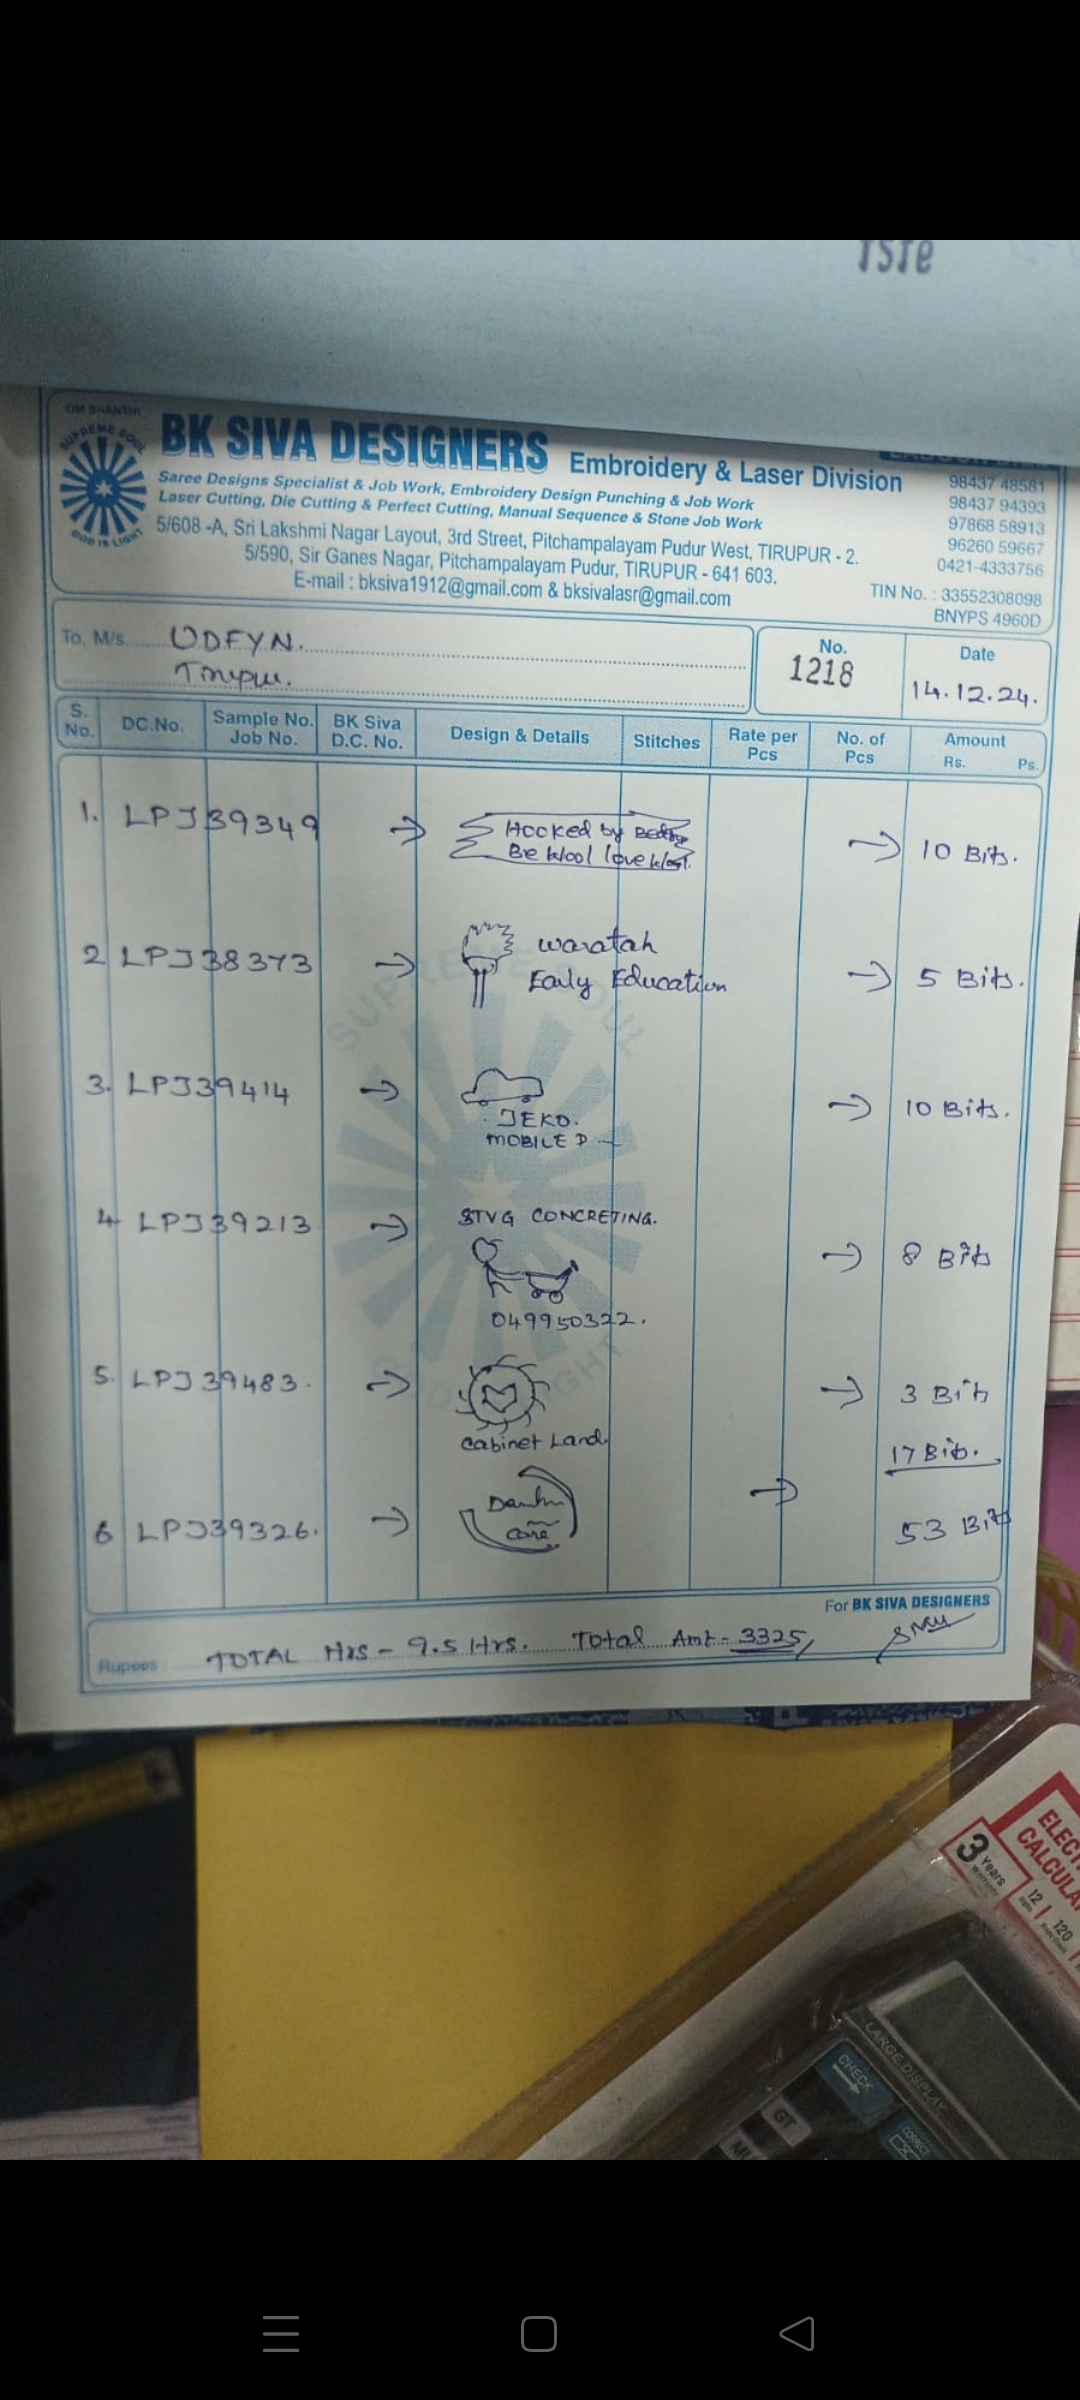 OM SHANTHI
SUPREME SOUL
GOD IS LIGHT
BK SIVA DESIGNERS Embroidery & Laser Division
Saree Designs Specialist & Job Work, Embroidery Design Punching & Job Work
Laser Cutting, Die Cutting & Perfect Cutting, Manual Sequence & Stone Job Work
5/608 -A, Sri Lakshmi Nagar Layout, 3rd Street, Pitchampalayam Pudur West, TIRUPUR - 2.
5/590, Sir Ganes Nagar, Pitchampalayam Pudur, TIRUPUR - 641 603.
E-mail : bksiva1912@gmail.com & bksivalasr@gmail.com
98437 48581
98437 94393
97868 58913
96260 59667
0421-4333756
TIN No. : 33552308098
BNYPS 4960D
To. M/s. UDFYN.
Tirupur.
No.
1218
Date
14.12.24.
S. No. DC.No. Sample No. Job No. BK Siva D.C. No. Design & Details Stitches Rate per Pcs No. of Pcs Amount Rs. Ps.
1. LPJ39349 → Hooked by
Be Wool love → 10 Bits.
2 LPJ38373 → Waratah
Early Education → 5 Bits.
3. LPJ39414 → JEKO.
MOBILE D → 10 Bits.
4 LPJ39213 → STVG CONCRETING.
049950322. → 8 Bits
5. LPJ39483. → Cabinet Land → 3 Bits
17 Bits.
6 LPJ39326. → Care →
53 Bits
For BK SIVA DESIGNERS
Rupees TOTAL Hrs - 9.5 Hrs. Total Amt - 3325/
SUPREME SOUL
3 Years
WARRANTY
12
120
LARGE DISPLAY
CHECK
CORRECT
GT